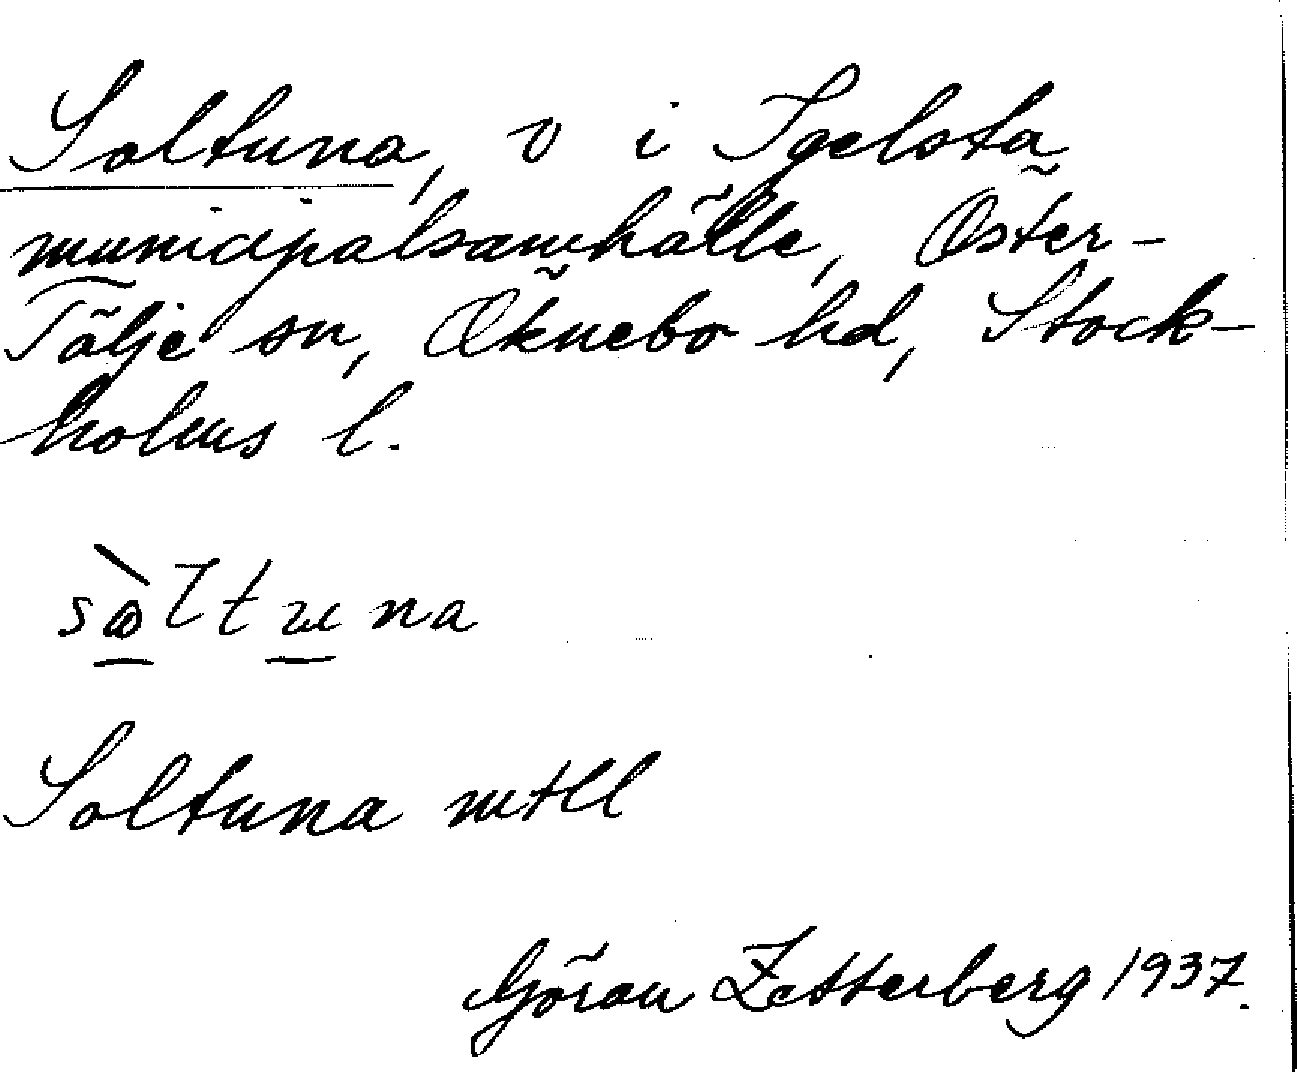 Soltuna, v i Igelsta
municipalsamhälle, Öster-
Tälje sn, Öknebo hd, Stock-
holms l.
sὼltuna
Soltuna mtll
Göran Zetterberg 1937.